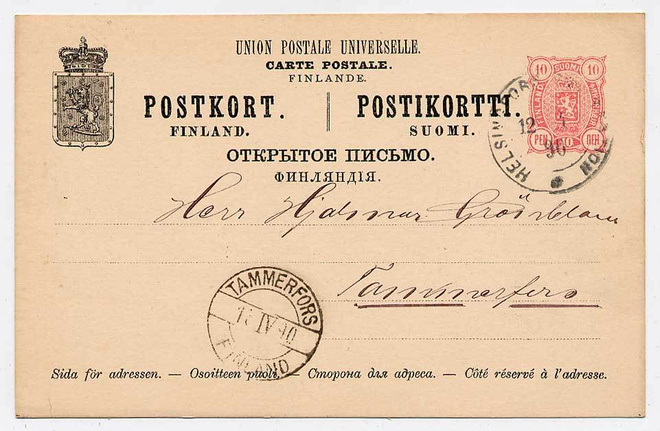 UNION POSTALE UNIVERSELLE.
CARTE POSTALE.
FINLANDE.
POSTKORT. POSTIKORTTI.
FINLAND. SUOMI.
ОТКРЫТОЕ ПИСЬМО.
ФИНЛЯНДІЯ.
10 SUOMI 10
FINLAND
PEN. 10 ПЕН.
HELSINGFORS
12 90
Herr Hjalmar
Tammerfors
TAMMERFORS
IV 90
FINLAND
Sida för adressen. — Osoitteen puoli. — Сторона для адреса. — Côté réservé à l'adresse.